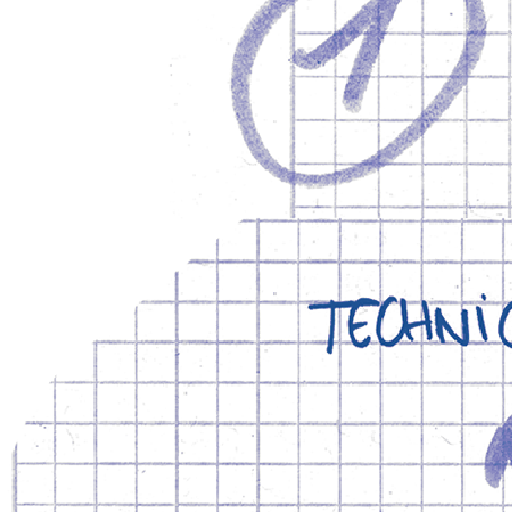 1
TECHNIC